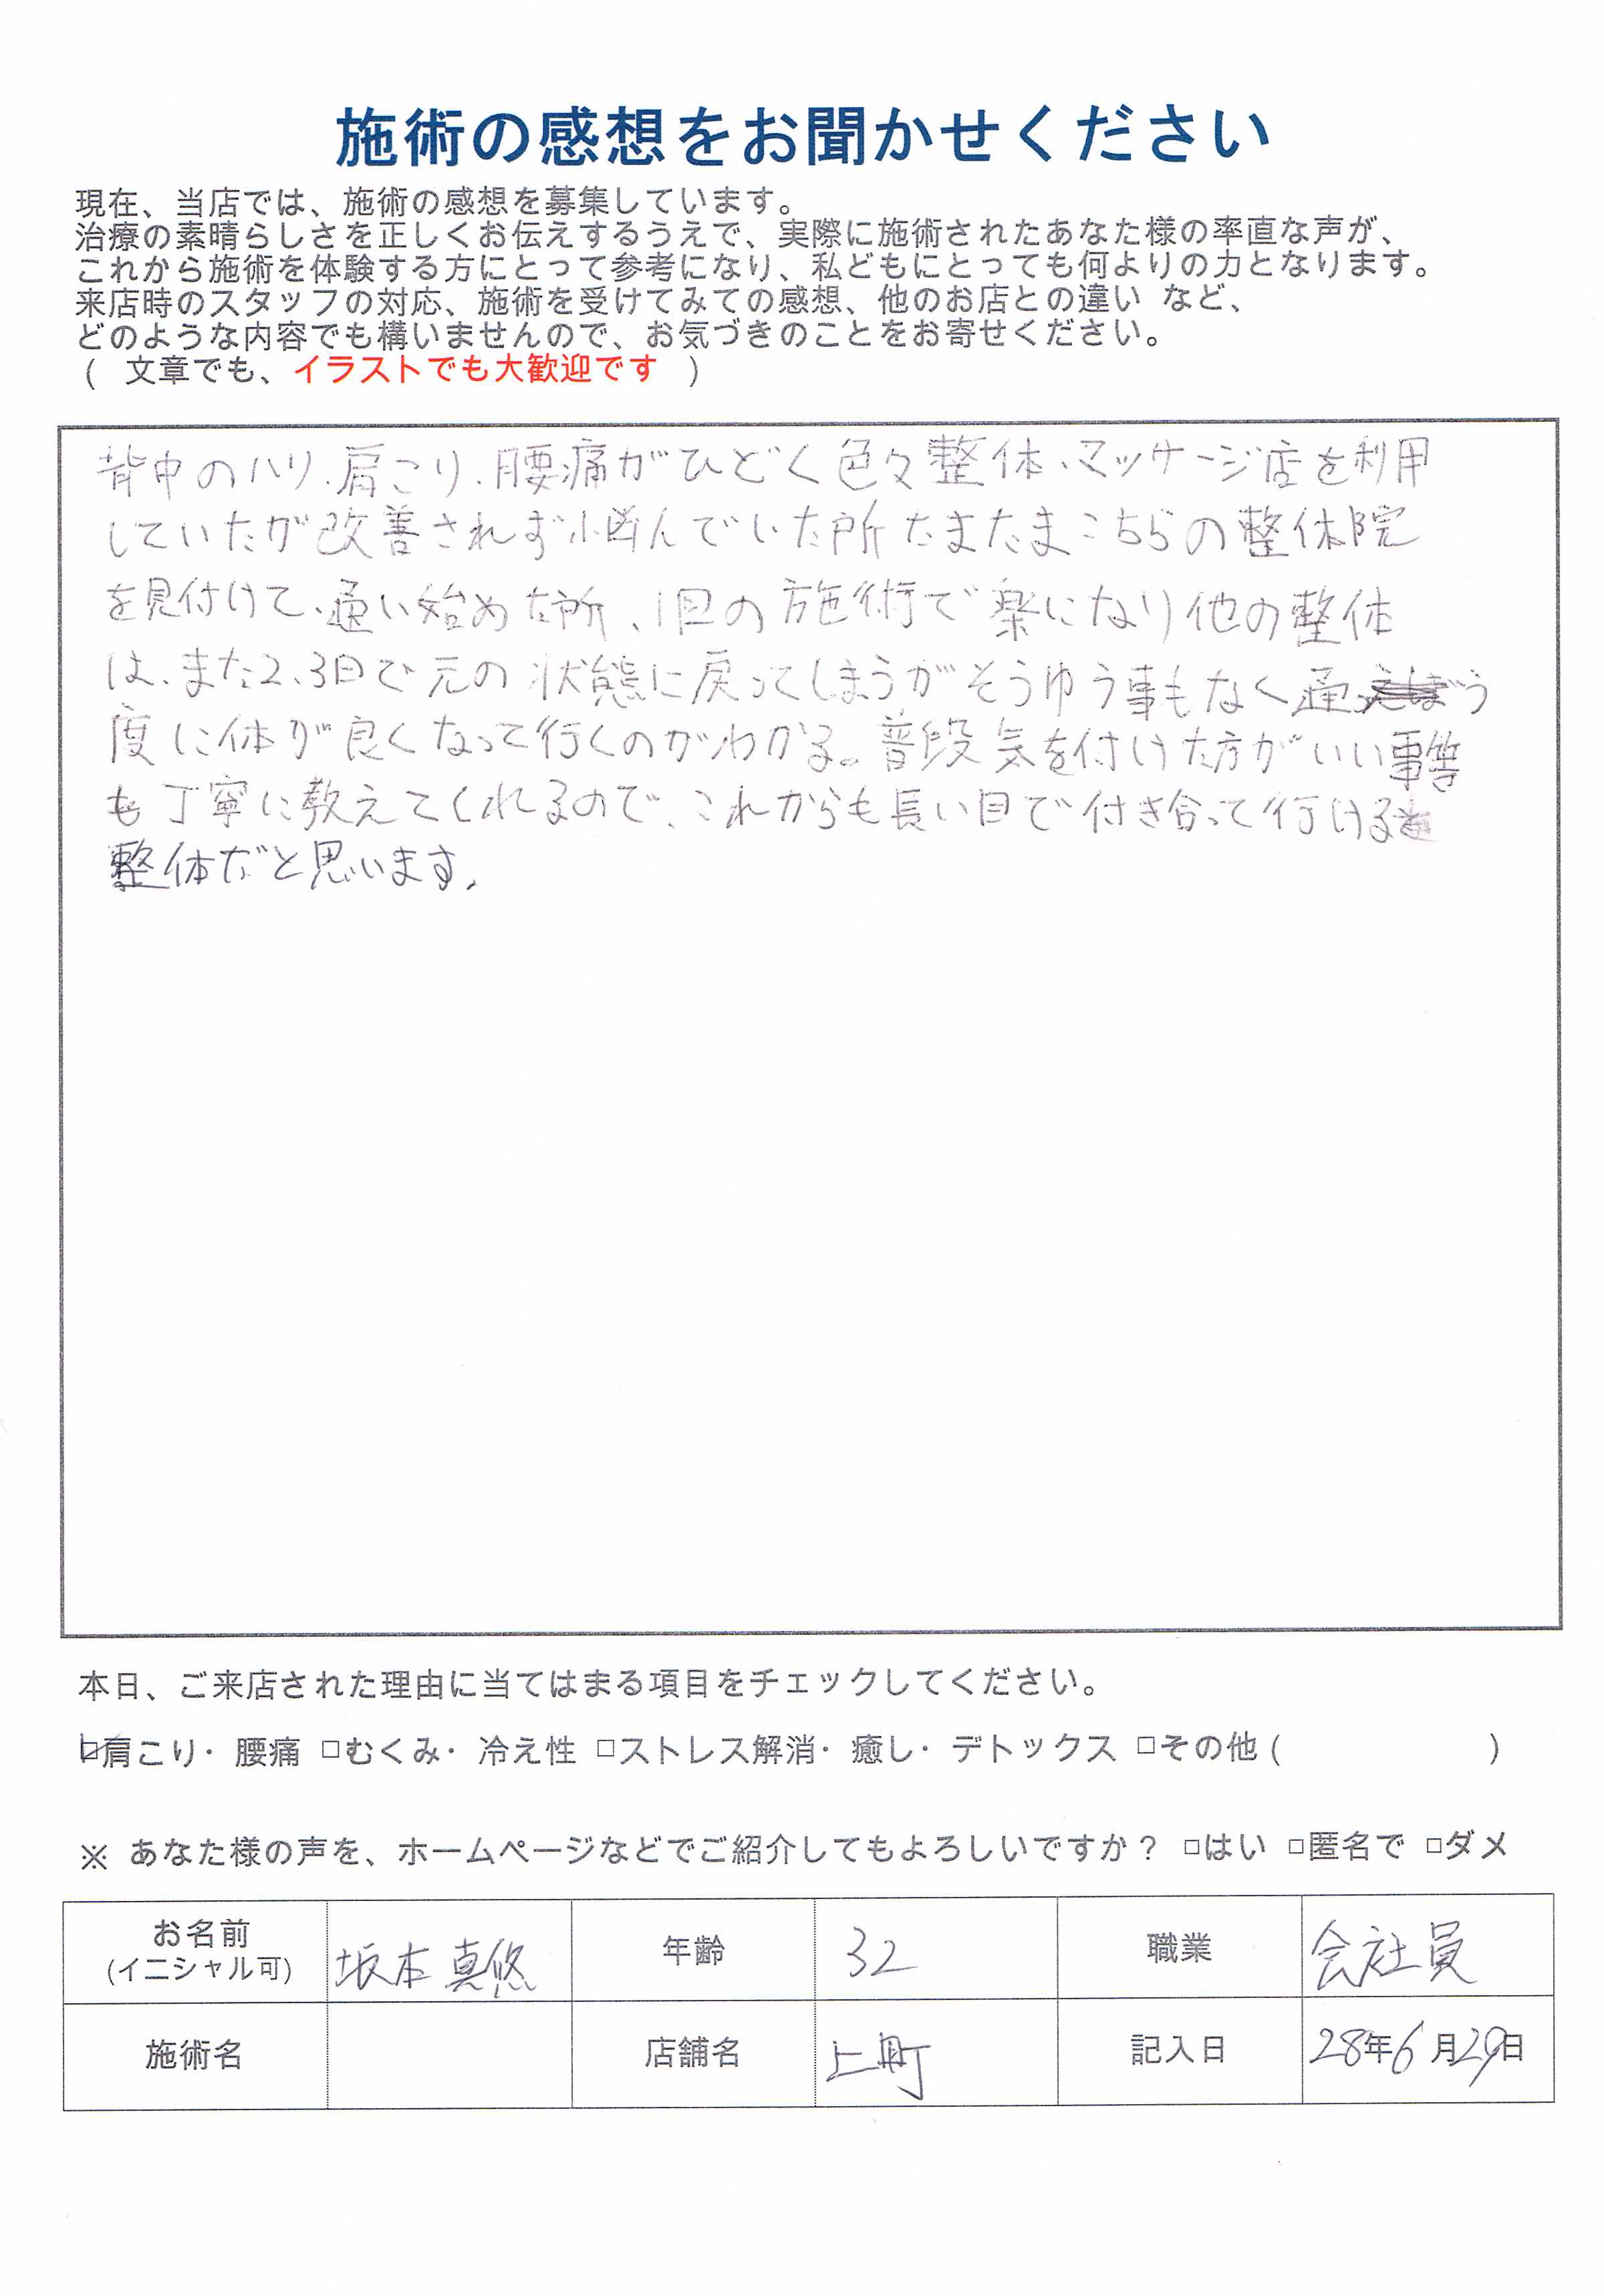 施術の感想をお聞かせください
現在、当店では、施術の感想を募集しています。
治療の素晴らしさを正しくお伝えするうえで、実際に施術されたあなた様の率直な声が、
これから施術を体験する方にとって参考になり、私どもにとっても何よりの力となります。
来店時のスタッフの対応、施術を受けてみての感想、他のお店との違い など、
どのような内容でも構いませんので、お気づきのことをお寄せください。
( 文章でも、イラストでも大歓迎です )
背中のハリ、肩こり、腰痛がひどく色々整体、マッサージ店を利用
していたが改善されず悩んでいた所たまたまこちらの整体院
を見付けて、通い始めた所、1回の施術で楽になり他の整体
は、また2、3日で元の状態に戻ってしまうがそうゆう事もなく通う
度に体が良くなって行くのがわかる。普段気を付けた方がいい事等
も丁寧に教えてくれるので、これからも長い目で付き合って行ける
整体だと思います。
本日、ご来店された理由に当てはまる項目をチェックしてください。
☑肩こり・腰痛 □むくみ・冷え性 □ストレス解消・癒し・デトックス □その他 ( )
※ あなた様の声を、ホームページなどでご紹介してもよろしいですか? □はい □匿名で □ダメ
お名前 坂本 真悠 年齢 32 職業 会社員
(イニシャル可)
施術名 店舗名 上町 記入日 28年6月29日